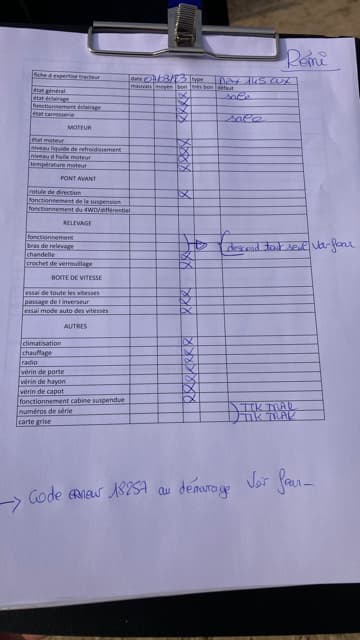 Rémi
fiche d expertise tracteur date 07/03/23 type Max 145 CVX
mauvais moyen bon très bon défaut
état général X sale
état éclairage X
fonctionnement éclairage X
état carrosserie X sale
MOTEUR
état moteur X
niveau liquide de refroidissement X
niveau d huile moteur X
température moteur X
PONT AVANT
rotule de direction X
fonctionnement de la suspension
fonctionnement du 4WD/différentiel
RELEVAGE
fonctionnement
bras de relevage descend tout seul Voir
chandelle X
crochet de verrouillage X
BOITE DE VITESSE
essai de toute les vitesses X
passage de l inverseur X
essai mode auto des vitesses X
AUTRES
climatisation X
chauffage X
radio X
vérin de porte X
vérin de hayon X
vérin de capot X
fonctionnement cabine suspendue X
numéros de série
carte grise
→ Code erreur 18257 au démarage Voir